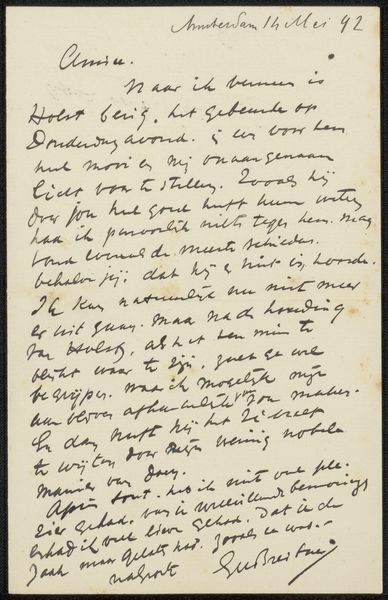 Amsterdam 14 Mei 92
Amice.
Naar ik verneem is
Holst bezig, het gebeurde op
Donderdagavond. voor hem
heel mooi en mij onaangenaam
licht voor te stellen. Zooals hij
over jou heel goed heeft kunnen weten
had ik persoonlijk niets tegen hem. maar
vond evenals de meeste schilders.
behalve jij. dat hij er niet in hoorde.
Ik kan natuurlijk nu niet meer
er uit gaan. maar na de houding
van Holst, als het ten minste
blijkt waar te zijn, zult ge wel
begrijpen. dat ik mogelijk mijn
aan blijven afhankelijk zou maken.
En dan heeft hij het zich zelf
te wijten door zijn weinig nobele
manier van doen.
Afin tout. heb ik niet veel ple-
zier gehad. van je welwillende bemoeiing
en had ik veel liever gehad. dat ik de
zaak maar gelaten had. zooals ze was.
GHBreitner